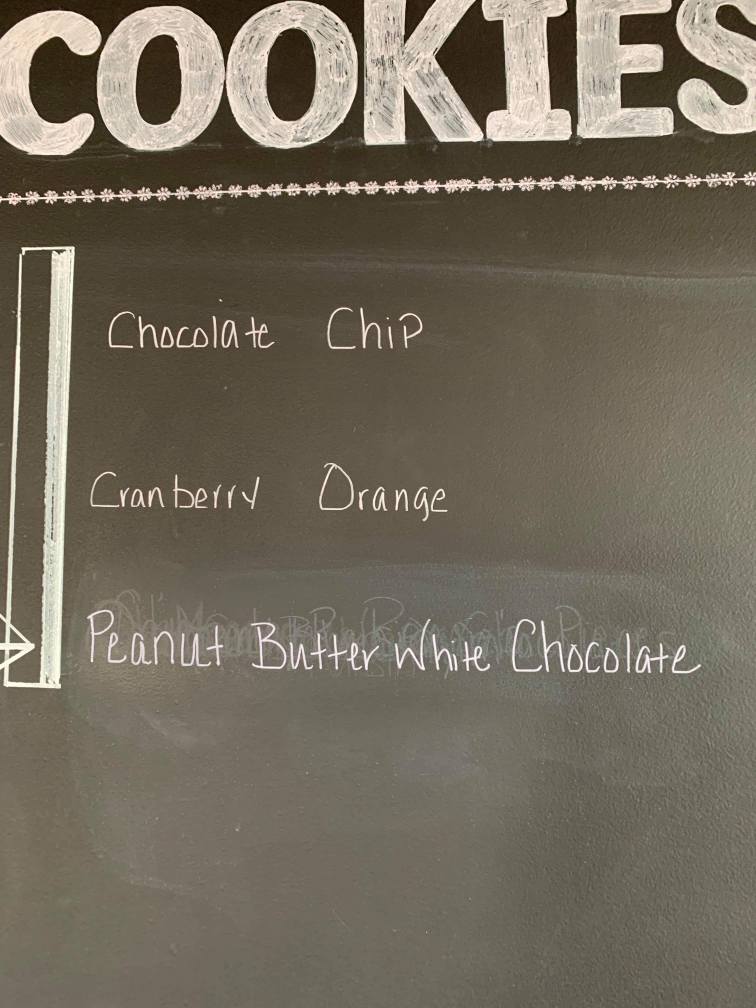 COOKIES
Chocolate Chip
Cranberry Orange
Peanut Butter White Chocolate